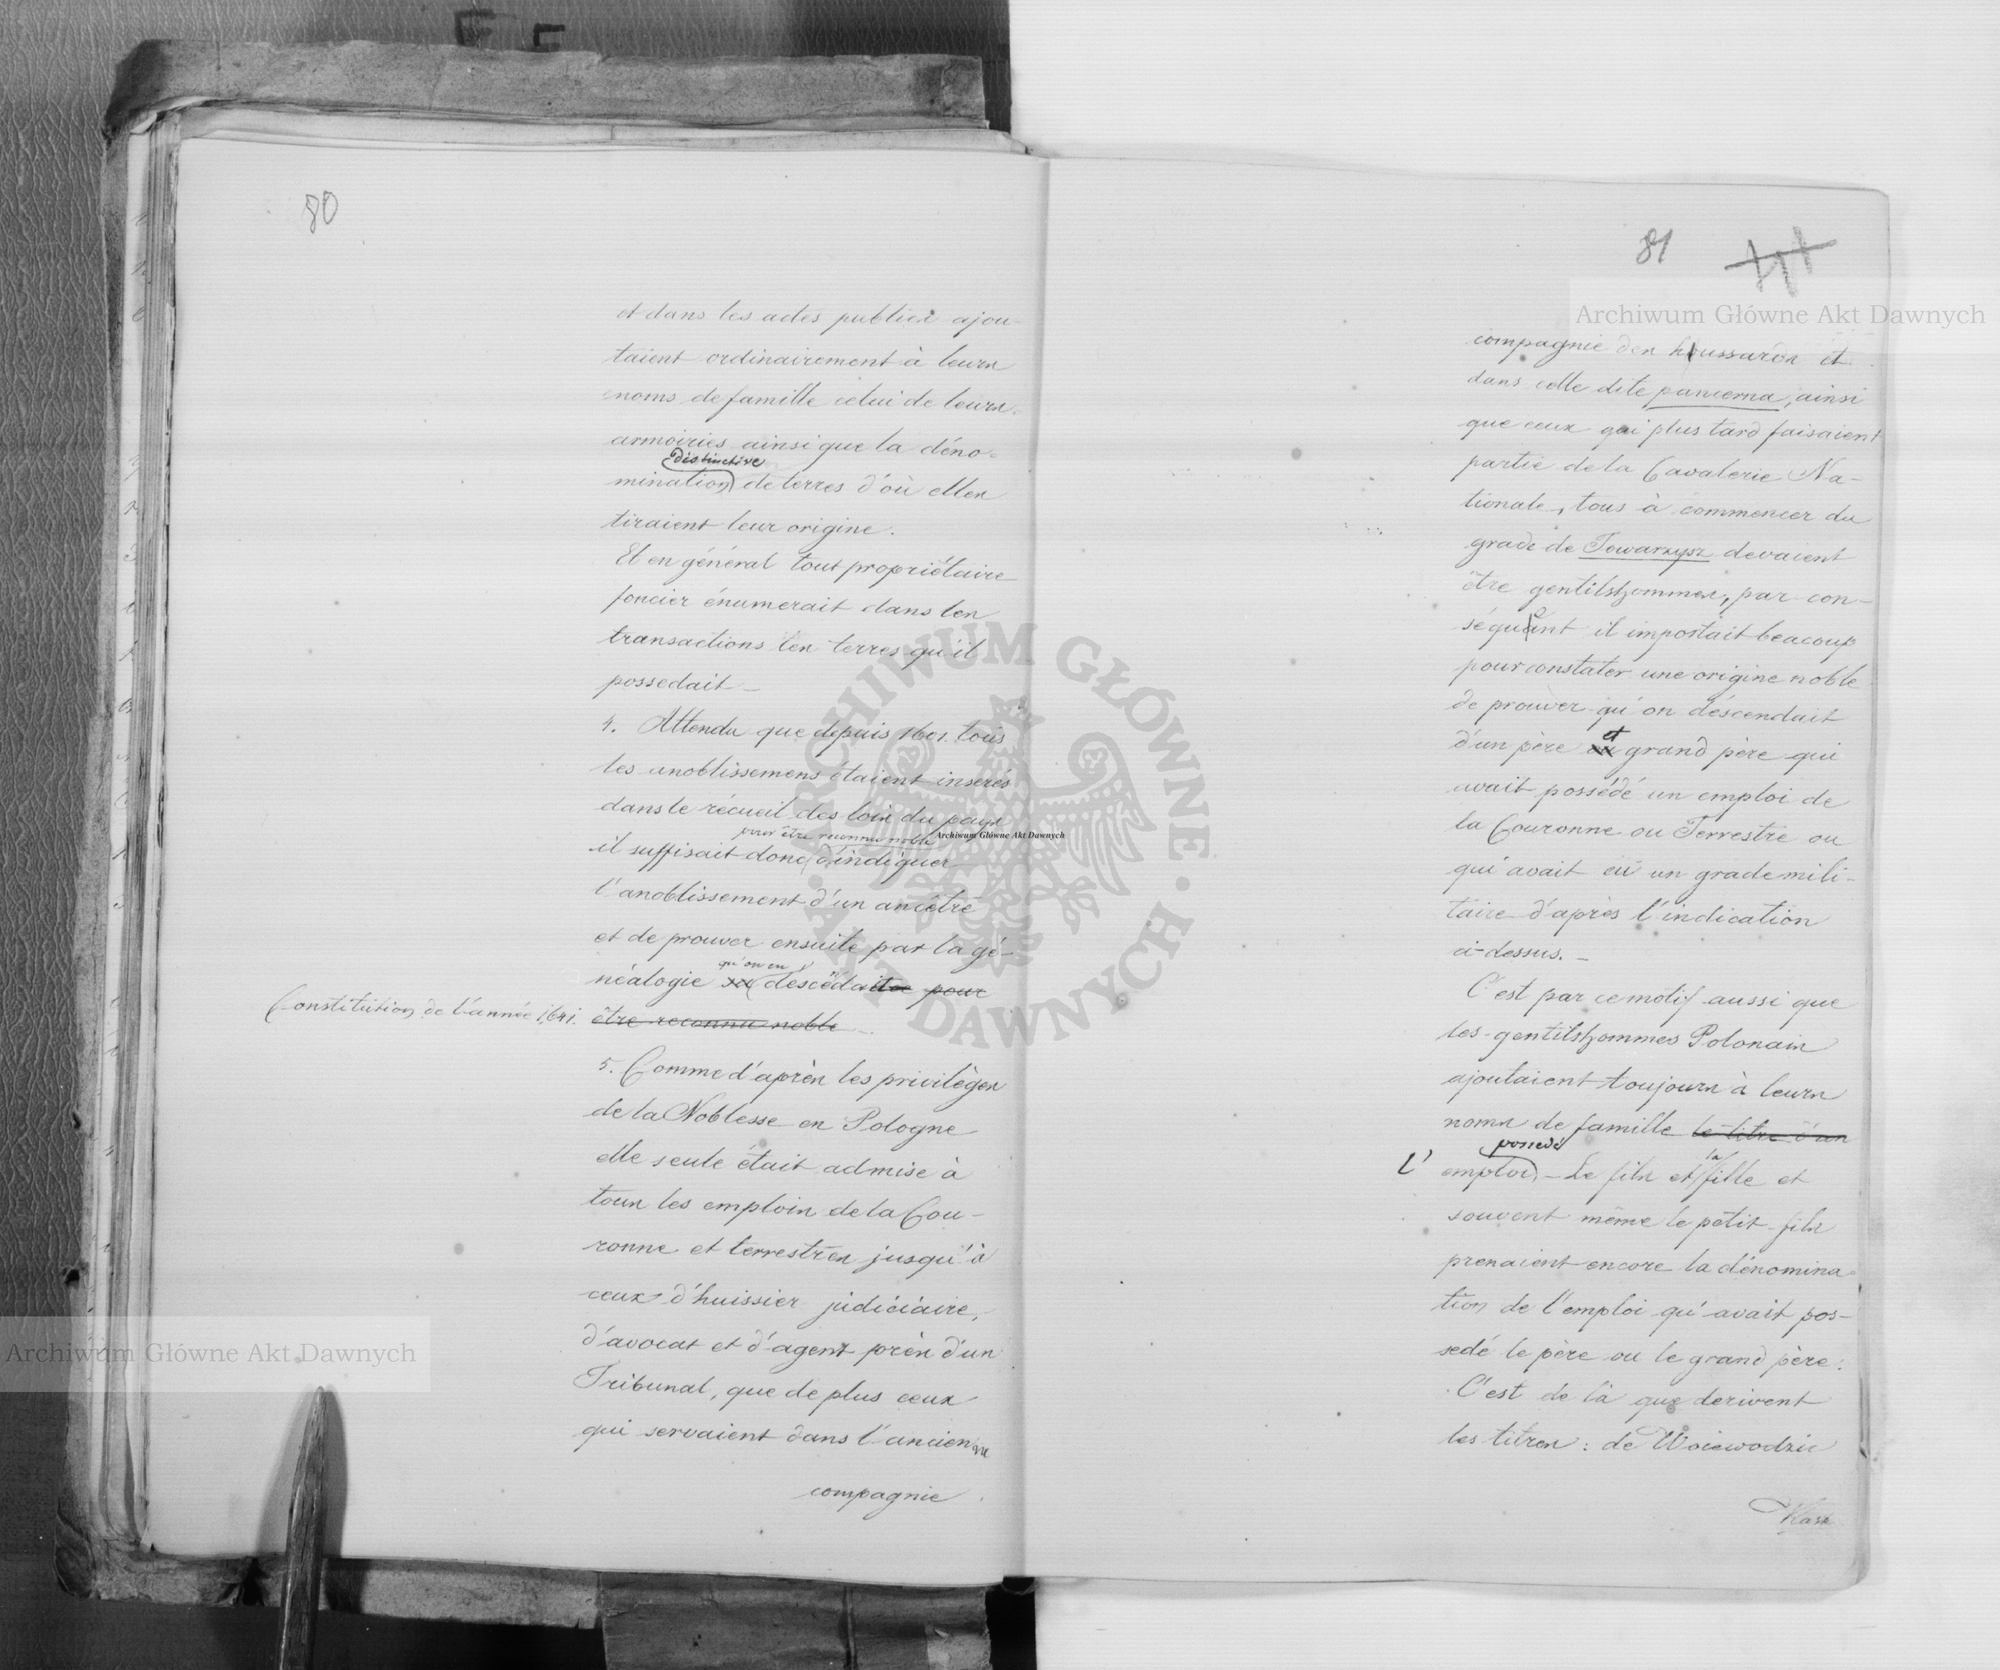 80
et dans les actes publics ajou-
taient ordinairement à leurs
noms de famille celui de leurs
armoiries ainsi que la déno-
distinctive
mination de terres d'où elles
tiraient leur origine.
Et en général tout propriétaire
foncier énumerait dans les
transactions les terres qu'il
possedait -
4. Attendu que depuis 1601. tous
les anoblissemens étaient inserés
dans le récueil des loix du pays
pour être reconnu noble
il suffisait donc d'indiquer
l'anoblissement d'un ancêtre
et de prouver ensuite par la gé-
qu'on en
néalogie descendait pour
Constitution de l'année 1641. être reconnu noble -
5. Comme d'après les privilèges
de la Noblesse en Pologne
elle seule était admise à
tous les emplois de la Cou-
ronne et terrestres jusqu'à
ceux d'huissier judiciaire,
d'avocat et d'agent près d'un
Tribunal, que de plus ceux
qui servaient dans l'ancienne
compagnie
81
compagnie des houssards et
dans celle dite pancerna, ainsi
que ceux qui plus tard faisaient
partie de la Cavalerie Na-
tionale, tous à commencer du
grade de Towarzysz devaient
être gentilshommes, par con-
séquent il importait beacoup
pour constater une origine noble
de prouver qu'on déscendait
d'un père et grand père qui
avait possédé un emploi de
la Couronne ou Terrestre ou
qui avait eû un grade mili-
taire d'après l'indication
ci-dessus. -
C'est par ce motif aussi que
les gentilshommes Polonais
ajoutaient toujours à leurs
noms de famille le titre d'un
possedé
l' emploi - Le fils et la fille et
souvent même le petit-fils
prenaient encore la dénomina-
tion de l'emploi qu'avait pos-
sedé le père ou le grand père.
C'est de là que derivent
les titres : de Woiewodzic
Kaszt
Archiwum Główne Akt Dawnych
Archiwum Główne Akt Dawnych
Archiwum Główne Akt Dawnych
ARCHIWUM GŁÓWNE · AKT DAWNYCH ·